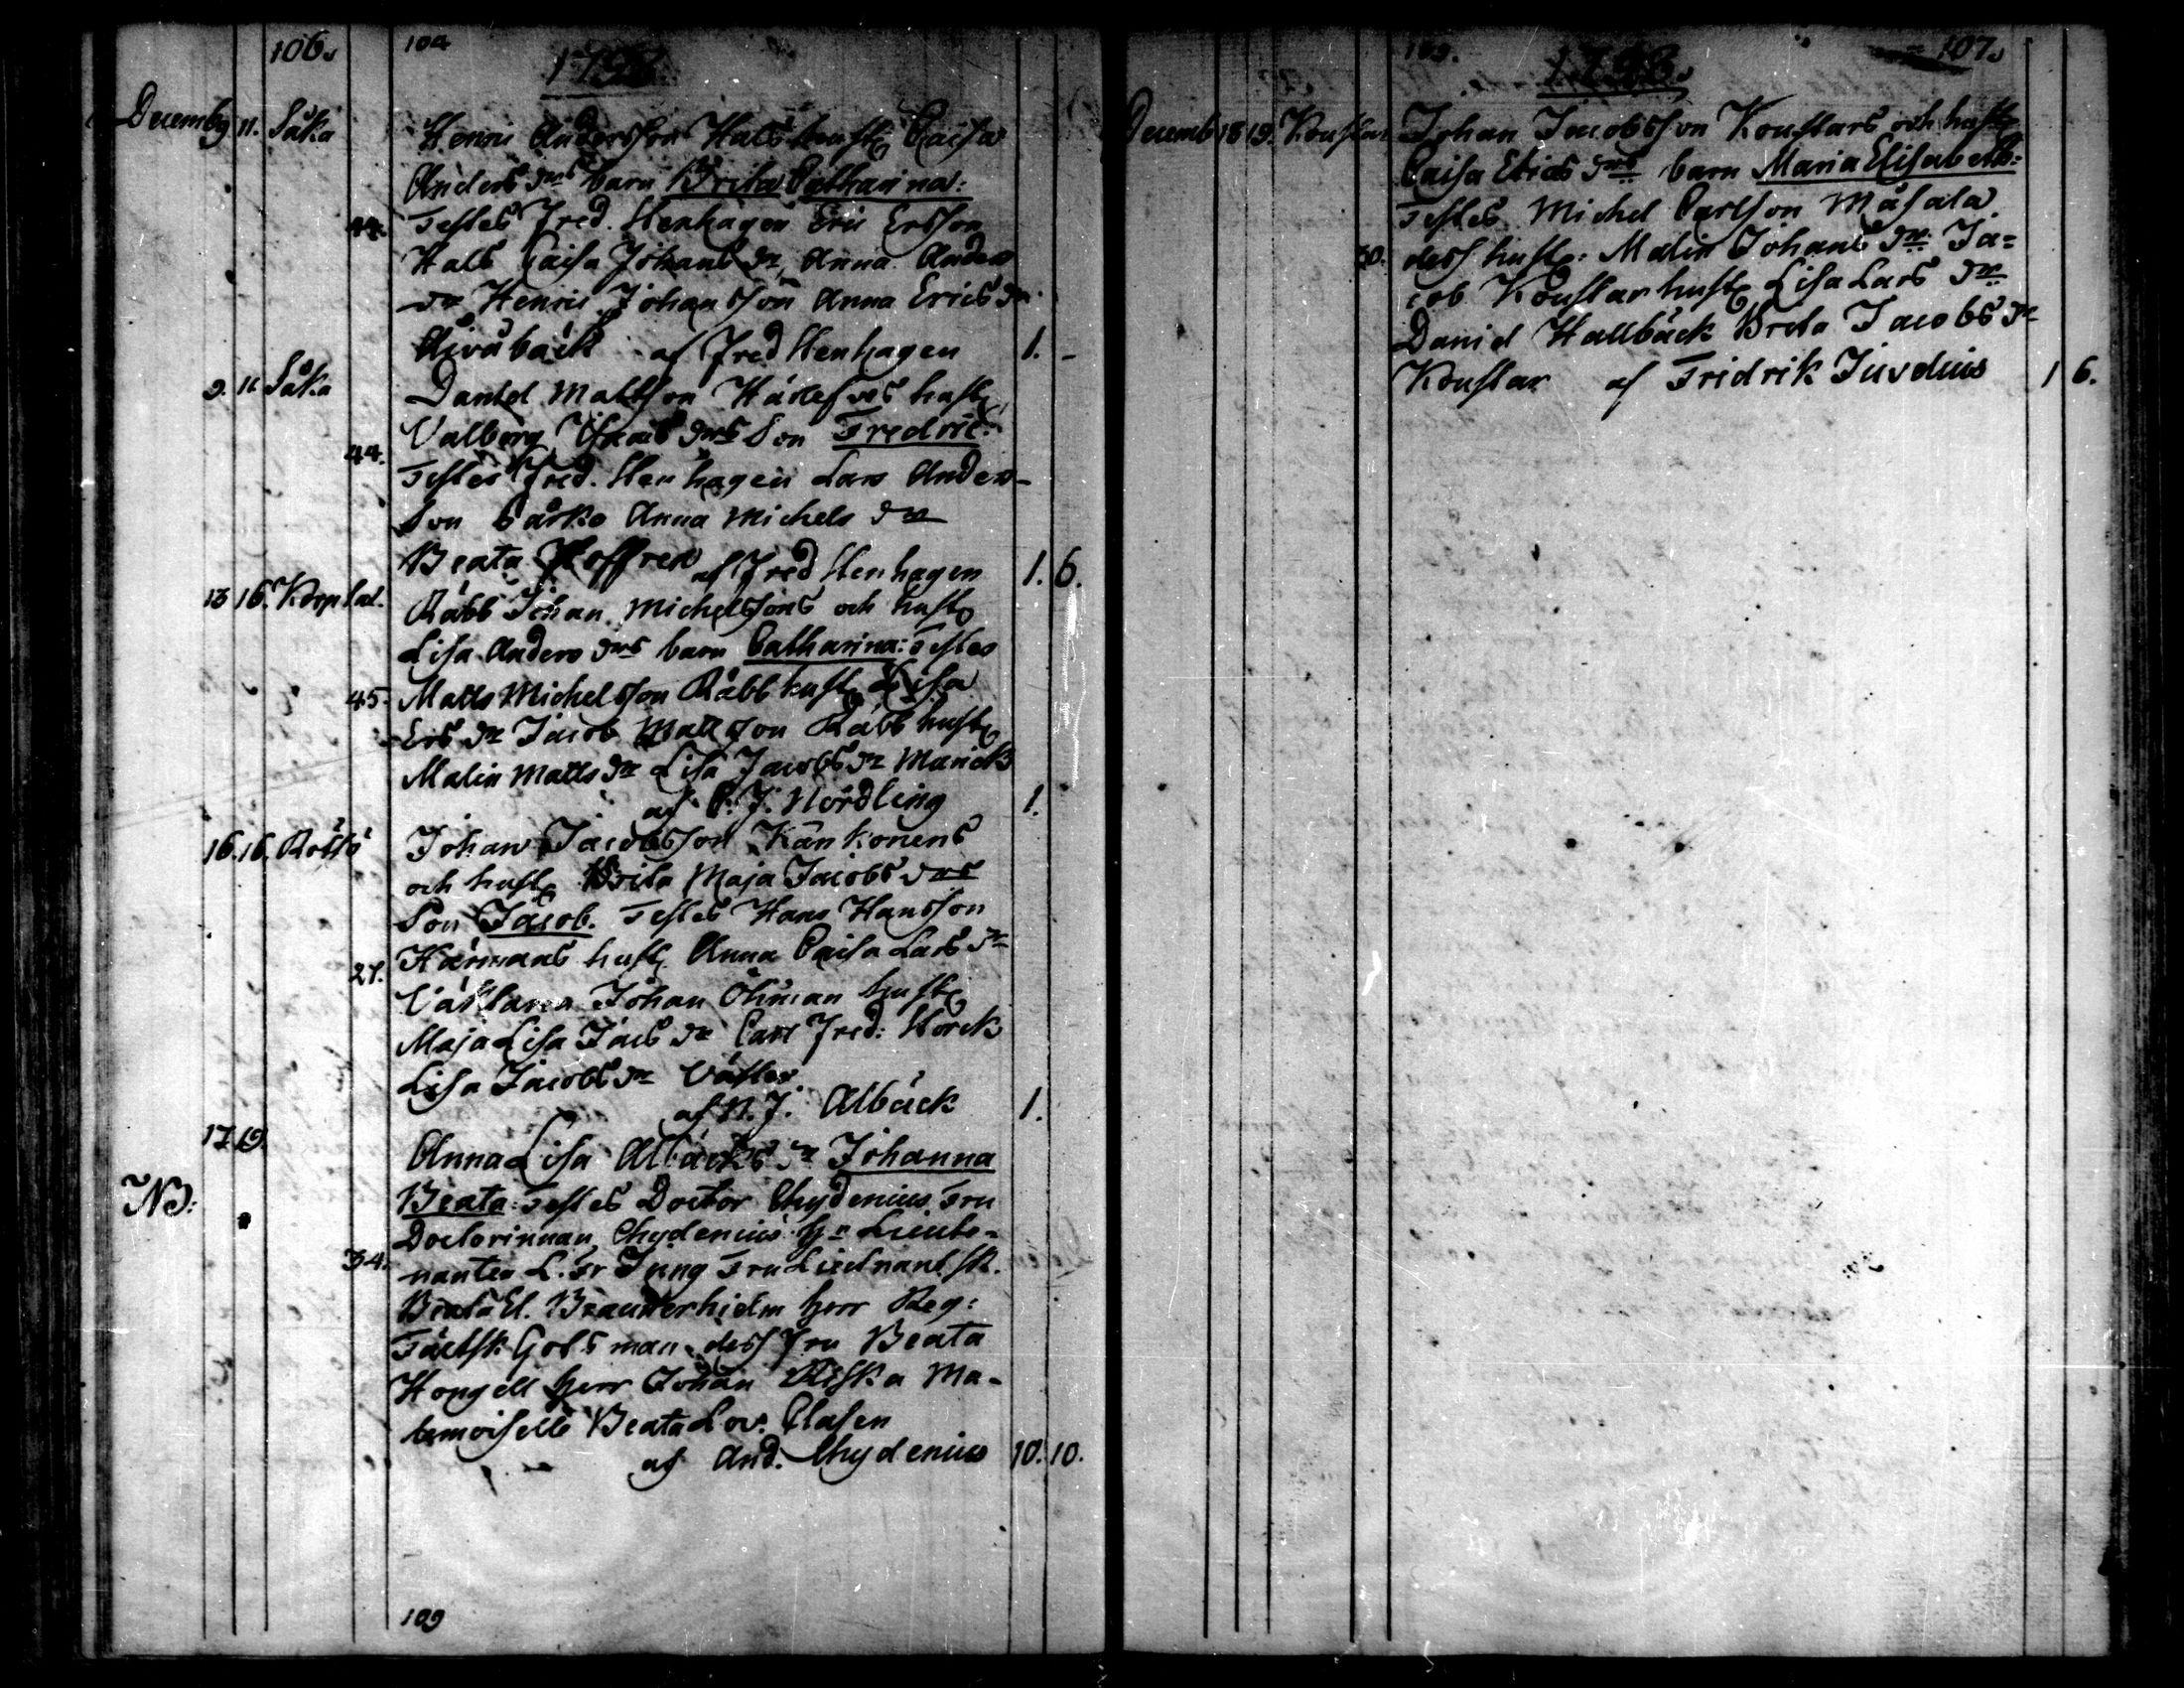 106. 104
1798
Decemb 9 11. Såka Henric Andersson Hals hust: Caisa
Anders drs barn Brita Catharina:
44. Testes Fred. Stenhagen Eric Ersson
Hals Caisa Johans dr, Anna Anders
dr Henric Johansson Anna Erics dr
af Fred Stenhagen 1. -
9. 11 Såka Daniel Mattson hust:
Valborg drs Son Fredric.
44. Testes Fred. Stenhagen Lars Anders-
son Anna Michels dr
Beata Hoffren af Fred Stenhagen 1. 6.
13 16. Korplax. Rabb Johan Michelssons och hust:
Lisa Anders drs barn Catharina: Testes
45. Matts Michelsson Rabb hust: Lisa
Ers dr Jacob Mattsson Rabb hust:
Malin Matts dr Lisa Jacobs dr
af P. J. Nordling 1.
16. 16. Johan Jacobsson Kankonens
och hust: Brita Maja Jacobs drs
Son Jacob. Testes Hans Hansson
27. hust: Anna Caisa Lars dr
Johan Öhman hust:
Maja Lisa Jacs dr Carl Fred: Storck
Lisa Jacobs dr
af N. J. Albäck 1.
17. 19. Anna Lisa Albäcks dr Johanna
NB: Beata: Testes Doctor Chydenius Fru
Doctorinnan Chydenius Hr Lieute-
34. nanten L. Fr Jung Fru Lieutnantsk.
Beata El. Braunerhielm Herr Reg:
Fältsk Gots man dess Fru Beata
Hongell Herr Johan Riska Ma-
demoiselle Beata Lov. Clasen
af And. Chydenius 10. 10.
109
105. 1798. 107.
Decemb 18 19. Johan Jacobsson och hust:
Caisa Elias drs barn Maria Elisabeth:
Testes Michel Carlson Måsala
30. dess hust: Malin Johans dr Ja=
cob hust: Lisa Lars dr
Daniel Hallbäck Brita Jacobs dr
af Fridrik Juvelius 1 6.